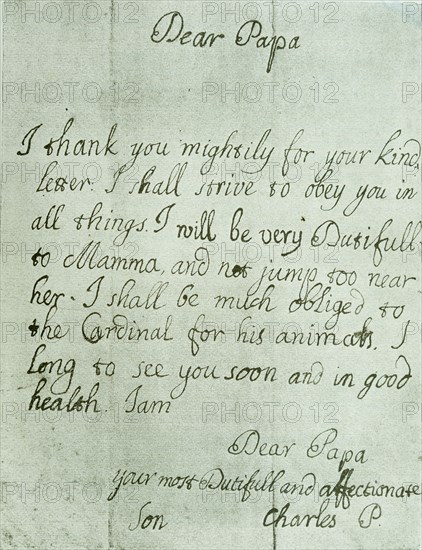 Dear Papa
I thank you mightily for your kind
letter. I shall strive to obey you in
all things. I will be very Dutifull
to Mamma, and not jump too near
her. I shall be much obliged to
the Cardinal for his animals. I
long to see you soon and in good
health. I am
Dear Papa
your most Dutifull and affectionate
Son Charles P.
PHOTO 12